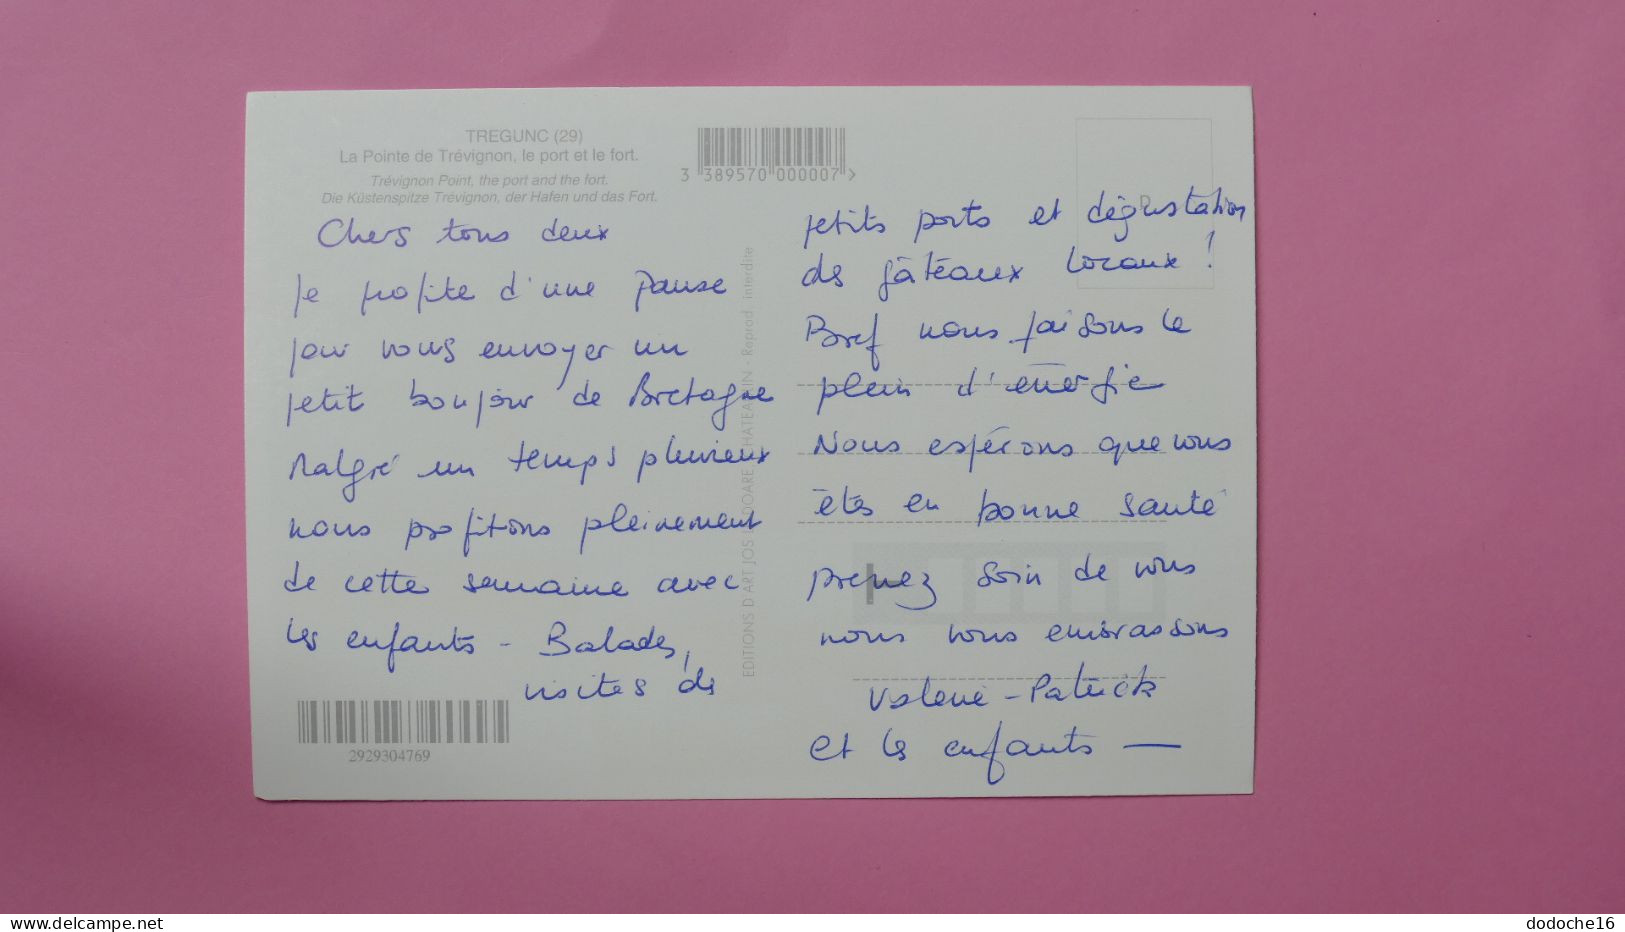 TREGUNC (29)
La Pointe de Trévignon, le port et le fort.
Trévignon Point, the port and the fort.
Die Küstenspitze Trévignon, der Hafen und das Fort.
3 389570 000007 >
Chers tous deux
Je profite d'une pause
pour vous envoyer un
petit bonjour de Bretagne
Malgré un temps pluvieux
nous profitons pleinement
de cette semaine avec
les enfants - Balades,
visites de
2929304769
EDITIONS D'ART JOS LE DOARE, CHATEAULIN - Reprod. interdite
petits ports et dégustation
de gâteaux locaux !
Bref nous faisons le
plein d'énergie
Nous espérons que vous
êtes en bonne santé
prenez soin de vous
nous vous embrassons
Valérie - Patrick
et les enfants —
www.delcampe.net
dodoche16